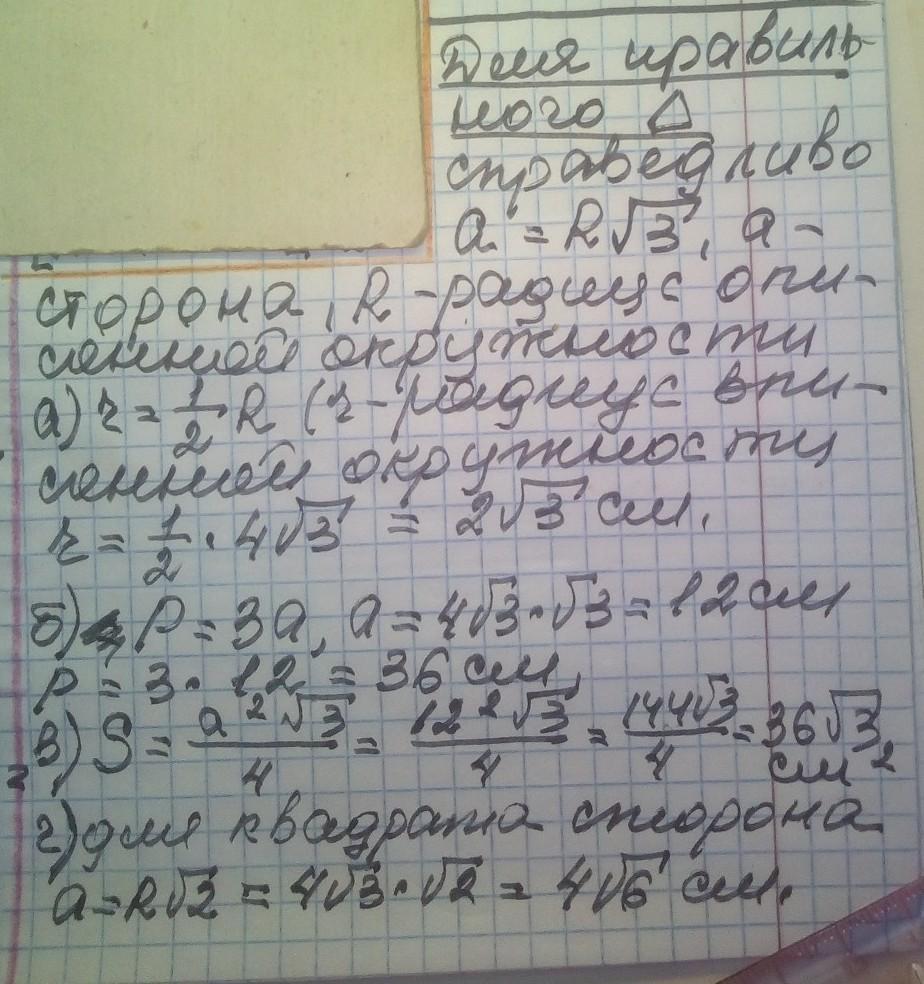 Для правиль-
ного Δ
справедливо
a = R√3, a -
сторона, R - радиус опи-
санной окружности
а) r = 1/2 R (r - радиус впи-
санной окружности
r = 1/2 · 4√3 = 2√3 см.
б) P = 3a, a = 4√3 · √3 = 12 см
P = 3 · 12 = 36 см,
в) S = a²√3/4 = 12²√3/4 = 144√3/4 = 36√3
см²
г) для квадрата сторона
a = R√2 = 4√3 · √2 = 4√6 см.